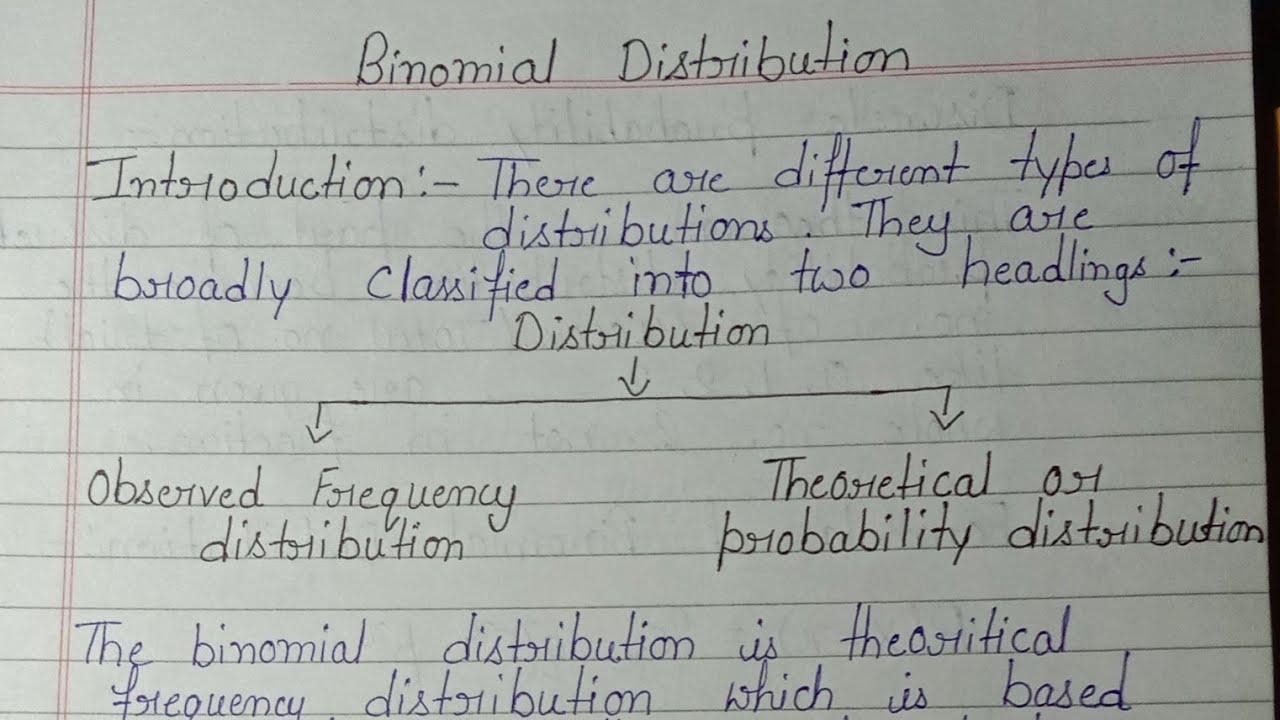 Binomial Distribution
Introduction:- There are different types of
distributions. They are
broadly classified into two headlings:-
Distribution
Observed Frequency
distribution
Theoretical or
probability distribution
The binomial distribution is theoritical
frequency distribution which is based